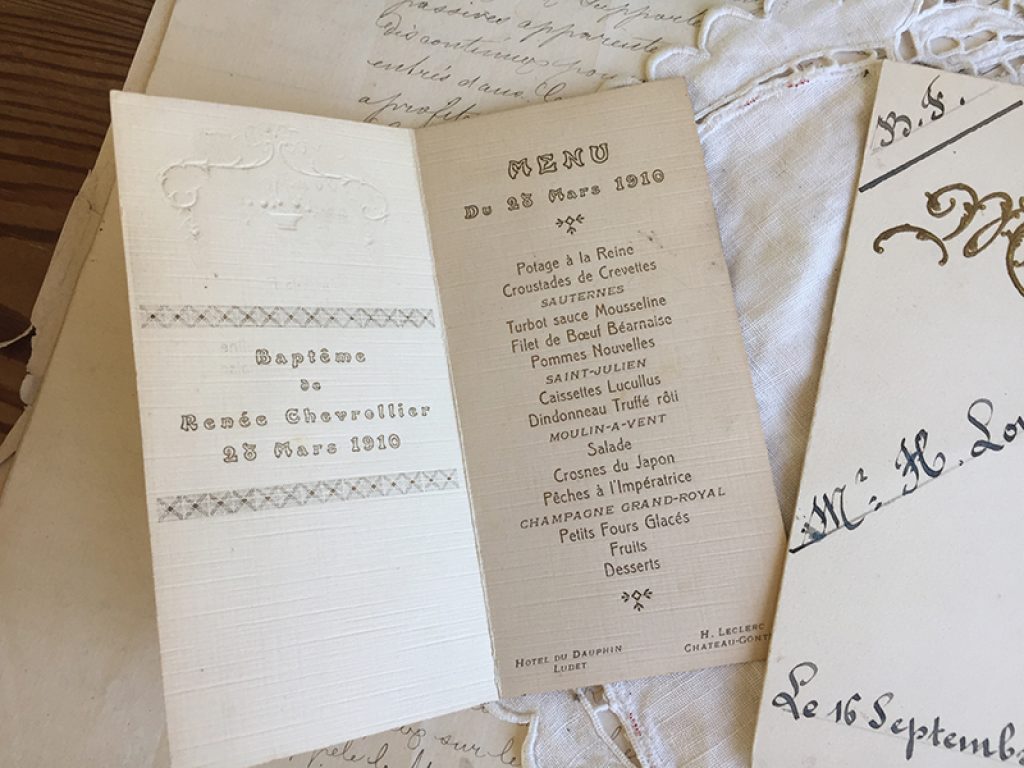 passives apparente
discontinues pour
entrés dans
a profité
Baptême
de
Renée Chevrollier
28 Mars 1910
MENU
Du 28 Mars 1910
Potage à la Reine
Croustades de Crevettes
SAUTERNES
Turbot sauce Mousseline
Filet de Bœuf Béarnaise
Pommes Nouvelles
SAINT-JULIEN
Caissettes Lucullus
Dindonneau Truffé rôti
MOULIN-A-VENT
Salade
Crosnes du Japon
Pêches à l'Impératrice
CHAMPAGNE GRAND-ROYAL
Petits Fours Glacés
Fruits
Desserts
HOTEL DU DAUPHIN
LUDET
H. LECLERC
CHATEAU-GONT
B. F.
Mr. H. Lou
Le 16 Septemb
sur le